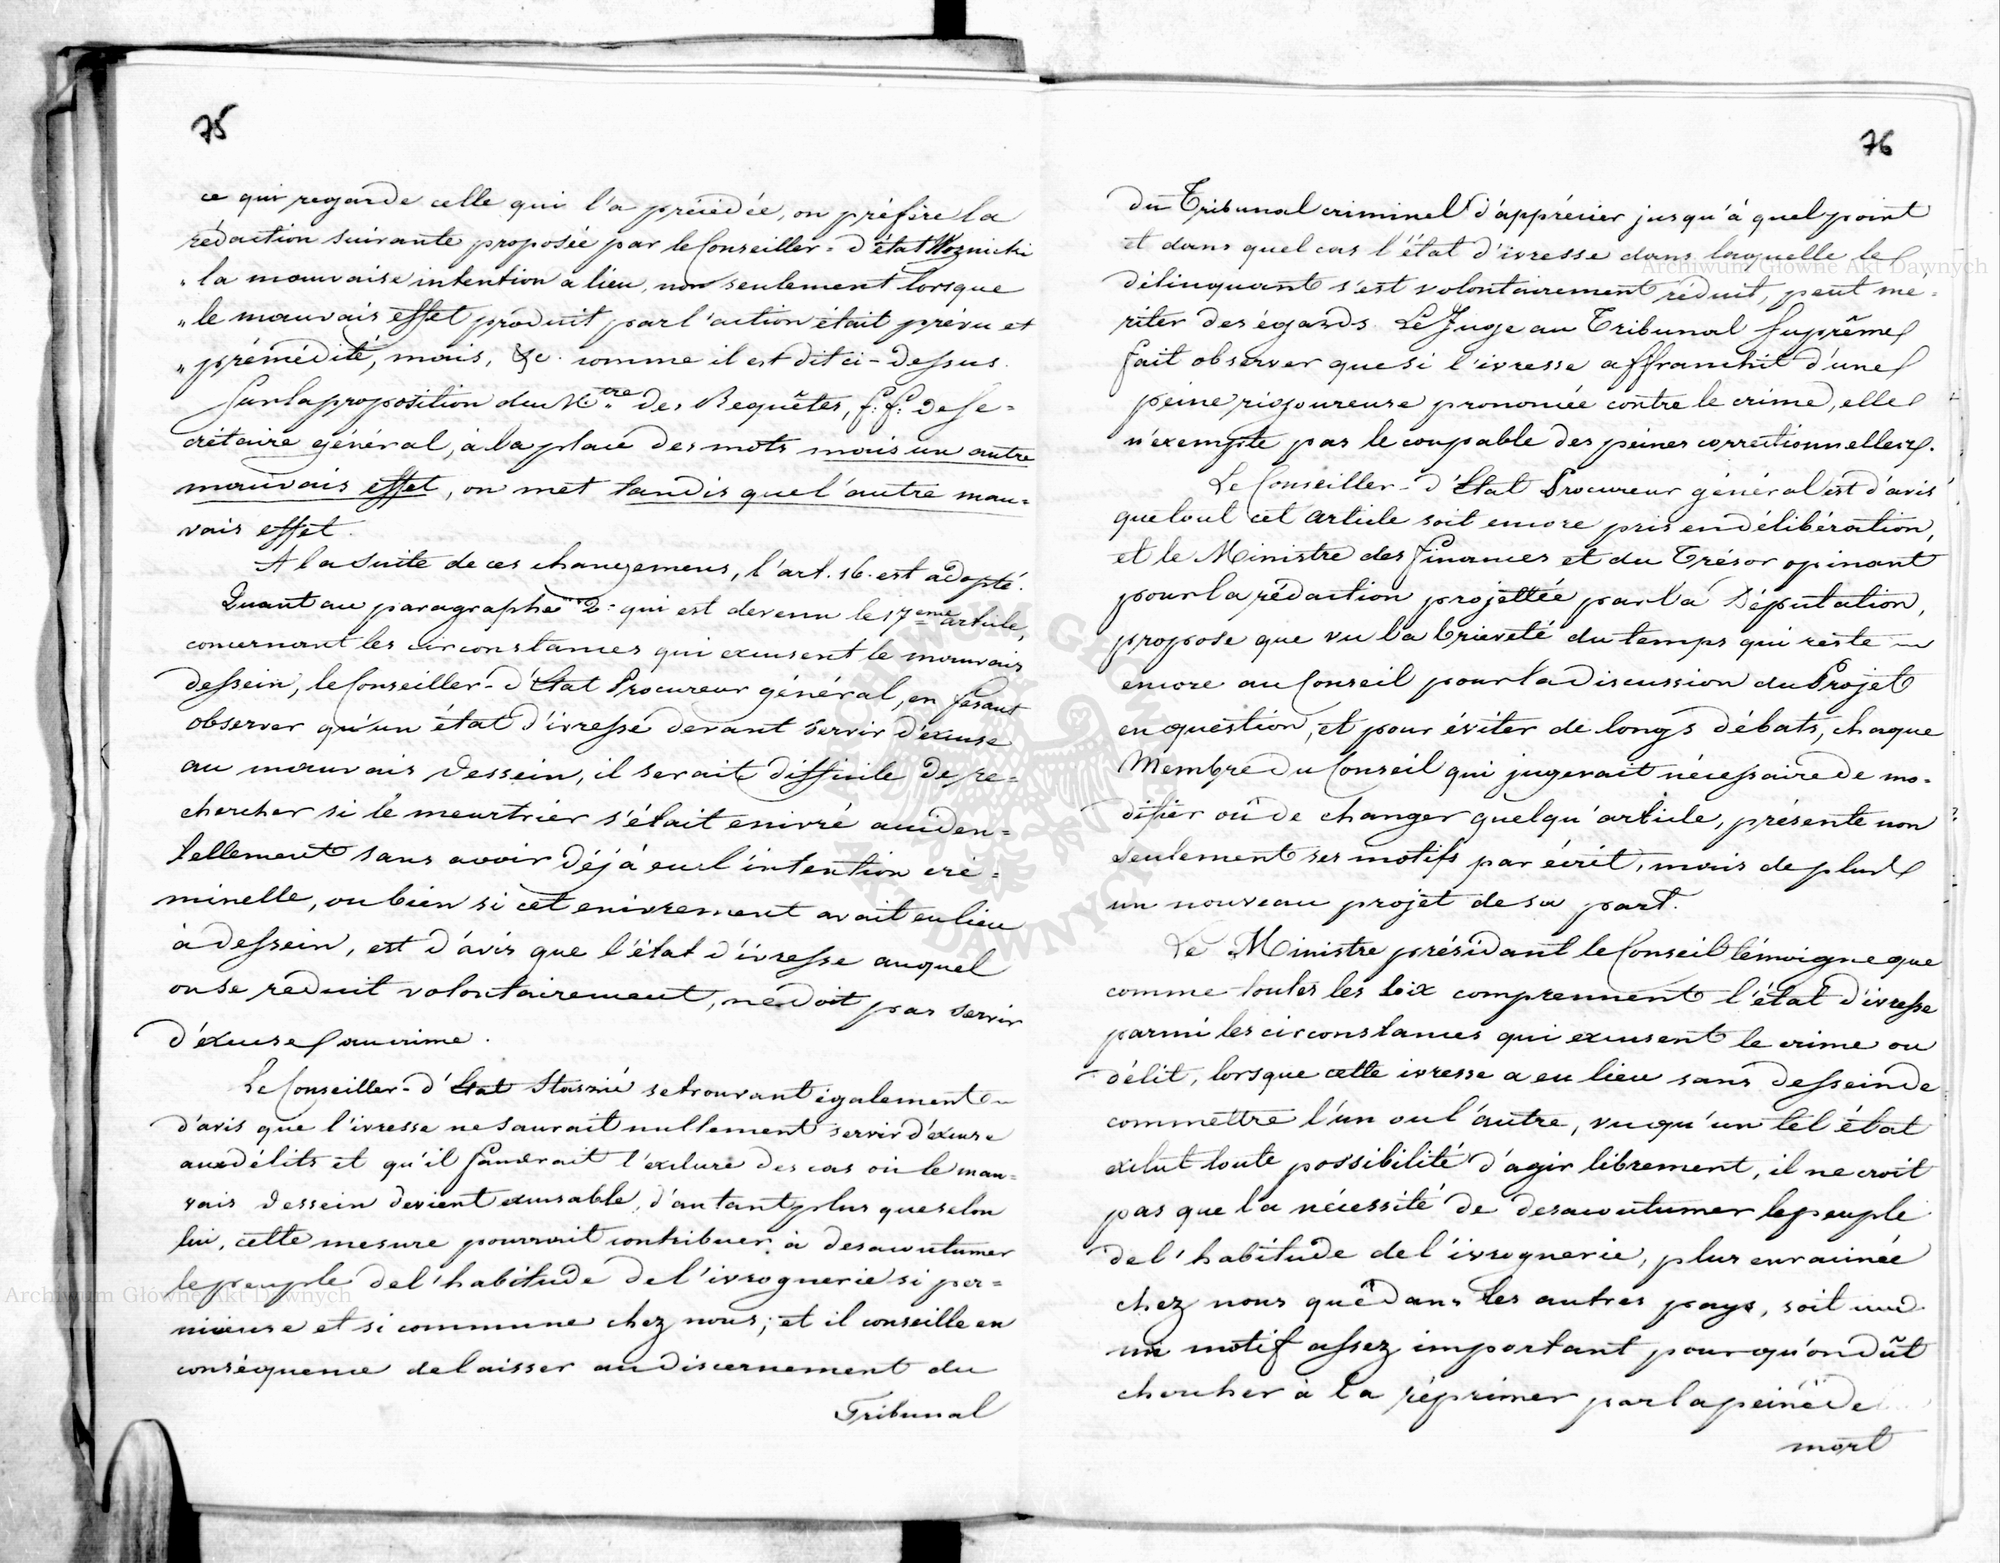 75
ce qui regarde celle qui l'a précédée, on préfère la
rédaction suivante proposée par le Conseiller-d'état Woznicki
„la mauvaise intention a lieu, non seulement lorsque
„le mauvais effet produit par l'action était prévu et
„prémédité, mais, &c. comme il est dit ci-dessus.
Sur la proposition du M.tre des Requêtes, f.f. de Se-
crétaire général, à la place des mots mais un autre
mauvais effet, on met tandis que l'autre mau-
vais effet.
A la suite de ces changemens, l'art. 16. est adopté.
Quant au paragraphe 2. qui est devenu le 17eme article,
concernant les circonstances qui excusent le mauvais
dessein, le Conseiller-d'État Procureur général, en fesant
observer qu'un état d'ivresse devant servir d'excuse
au mauvais dessein, il serait difficile de re-
chercher si le meurtrier s'était enivré acciden-
tellement sans avoir déjà eu l'intention cri-
minelle, ou bien si cet enivrement avait eu lieu
à dessein, est d'avis que l'état d'ivresse auquel
on se réduit volontairement, ne doit pas servir
d'excuse au crime.
Le Conseiller-d'État Staszic se trouvant également
d'avis que l'ivresse ne saurait nullement servir d'excuse
aux délits et qu'il faudrait l'exclure des cas où le mau-
vais dessein devient excusable, d'autant plus que selon
lui, cette mesure pourrait contribuer à desaccoutumer
le peuple de l'habitude de l'ivrognerie si per-
nicieuse et si commune chez nous; et il conseille en
conséquence de laisser au discernement du
Tribunal
76
du Tribunal criminel d'apprécier jusqu'à quel point
et dans quel cas l'état d'ivresse dans laquelle le
délinquant s'est volontairement réduit, peut mé-
riter des égards. Le Juge au Tribunal Suprême
fait observer que si l'ivresse affranchit d'une
peine rigoureuse prononcée contre le crime, elle
n'exempte pas le coupable des peines correctionnelles.
Le Conseiller-d'État Procureur général est d'avis
que tout cet article soit encore pris en délibération,
et le Ministre des finances et du Trésor opinant
pour la rédaction projettée par la Députation,
propose que vu la brieveté du temps qui reste
encore au Conseil pour la discussion du Projet
en question, et pour éviter de longs débats, chaque
Membre du Conseil qui jugerait nécessaire de mo-
difier ou de changer quelqu'article, présente non
seulement ses motifs par écrit, mais de plus
un nouveau projet de sa part.
Le Ministre présidant le Conseil témoigne que
comme toutes les loix comprennent l'état d'ivresse
parmi les circonstances qui excusent le crime ou
délit, lorsque cette ivresse a eu lieu sans dessein de
commettre l'un ou l'autre, vu qu'un tel état
exclut toute possibilité d'agir librement, il ne croit
pas que la nécessité de desaccoutumer le peuple
de l'habitude de l'ivrognerie, plus enracinée
chez nous que dans les autres pays, soit
un motif assez important pour qu'on dût
chercher à la réprimer par la peine de
mort
Archiwum Główne Akt Dawnych
Archiwum Główne Akt Dawnych
ARCHIWUM GŁÓWNE AKT DAWNYCH